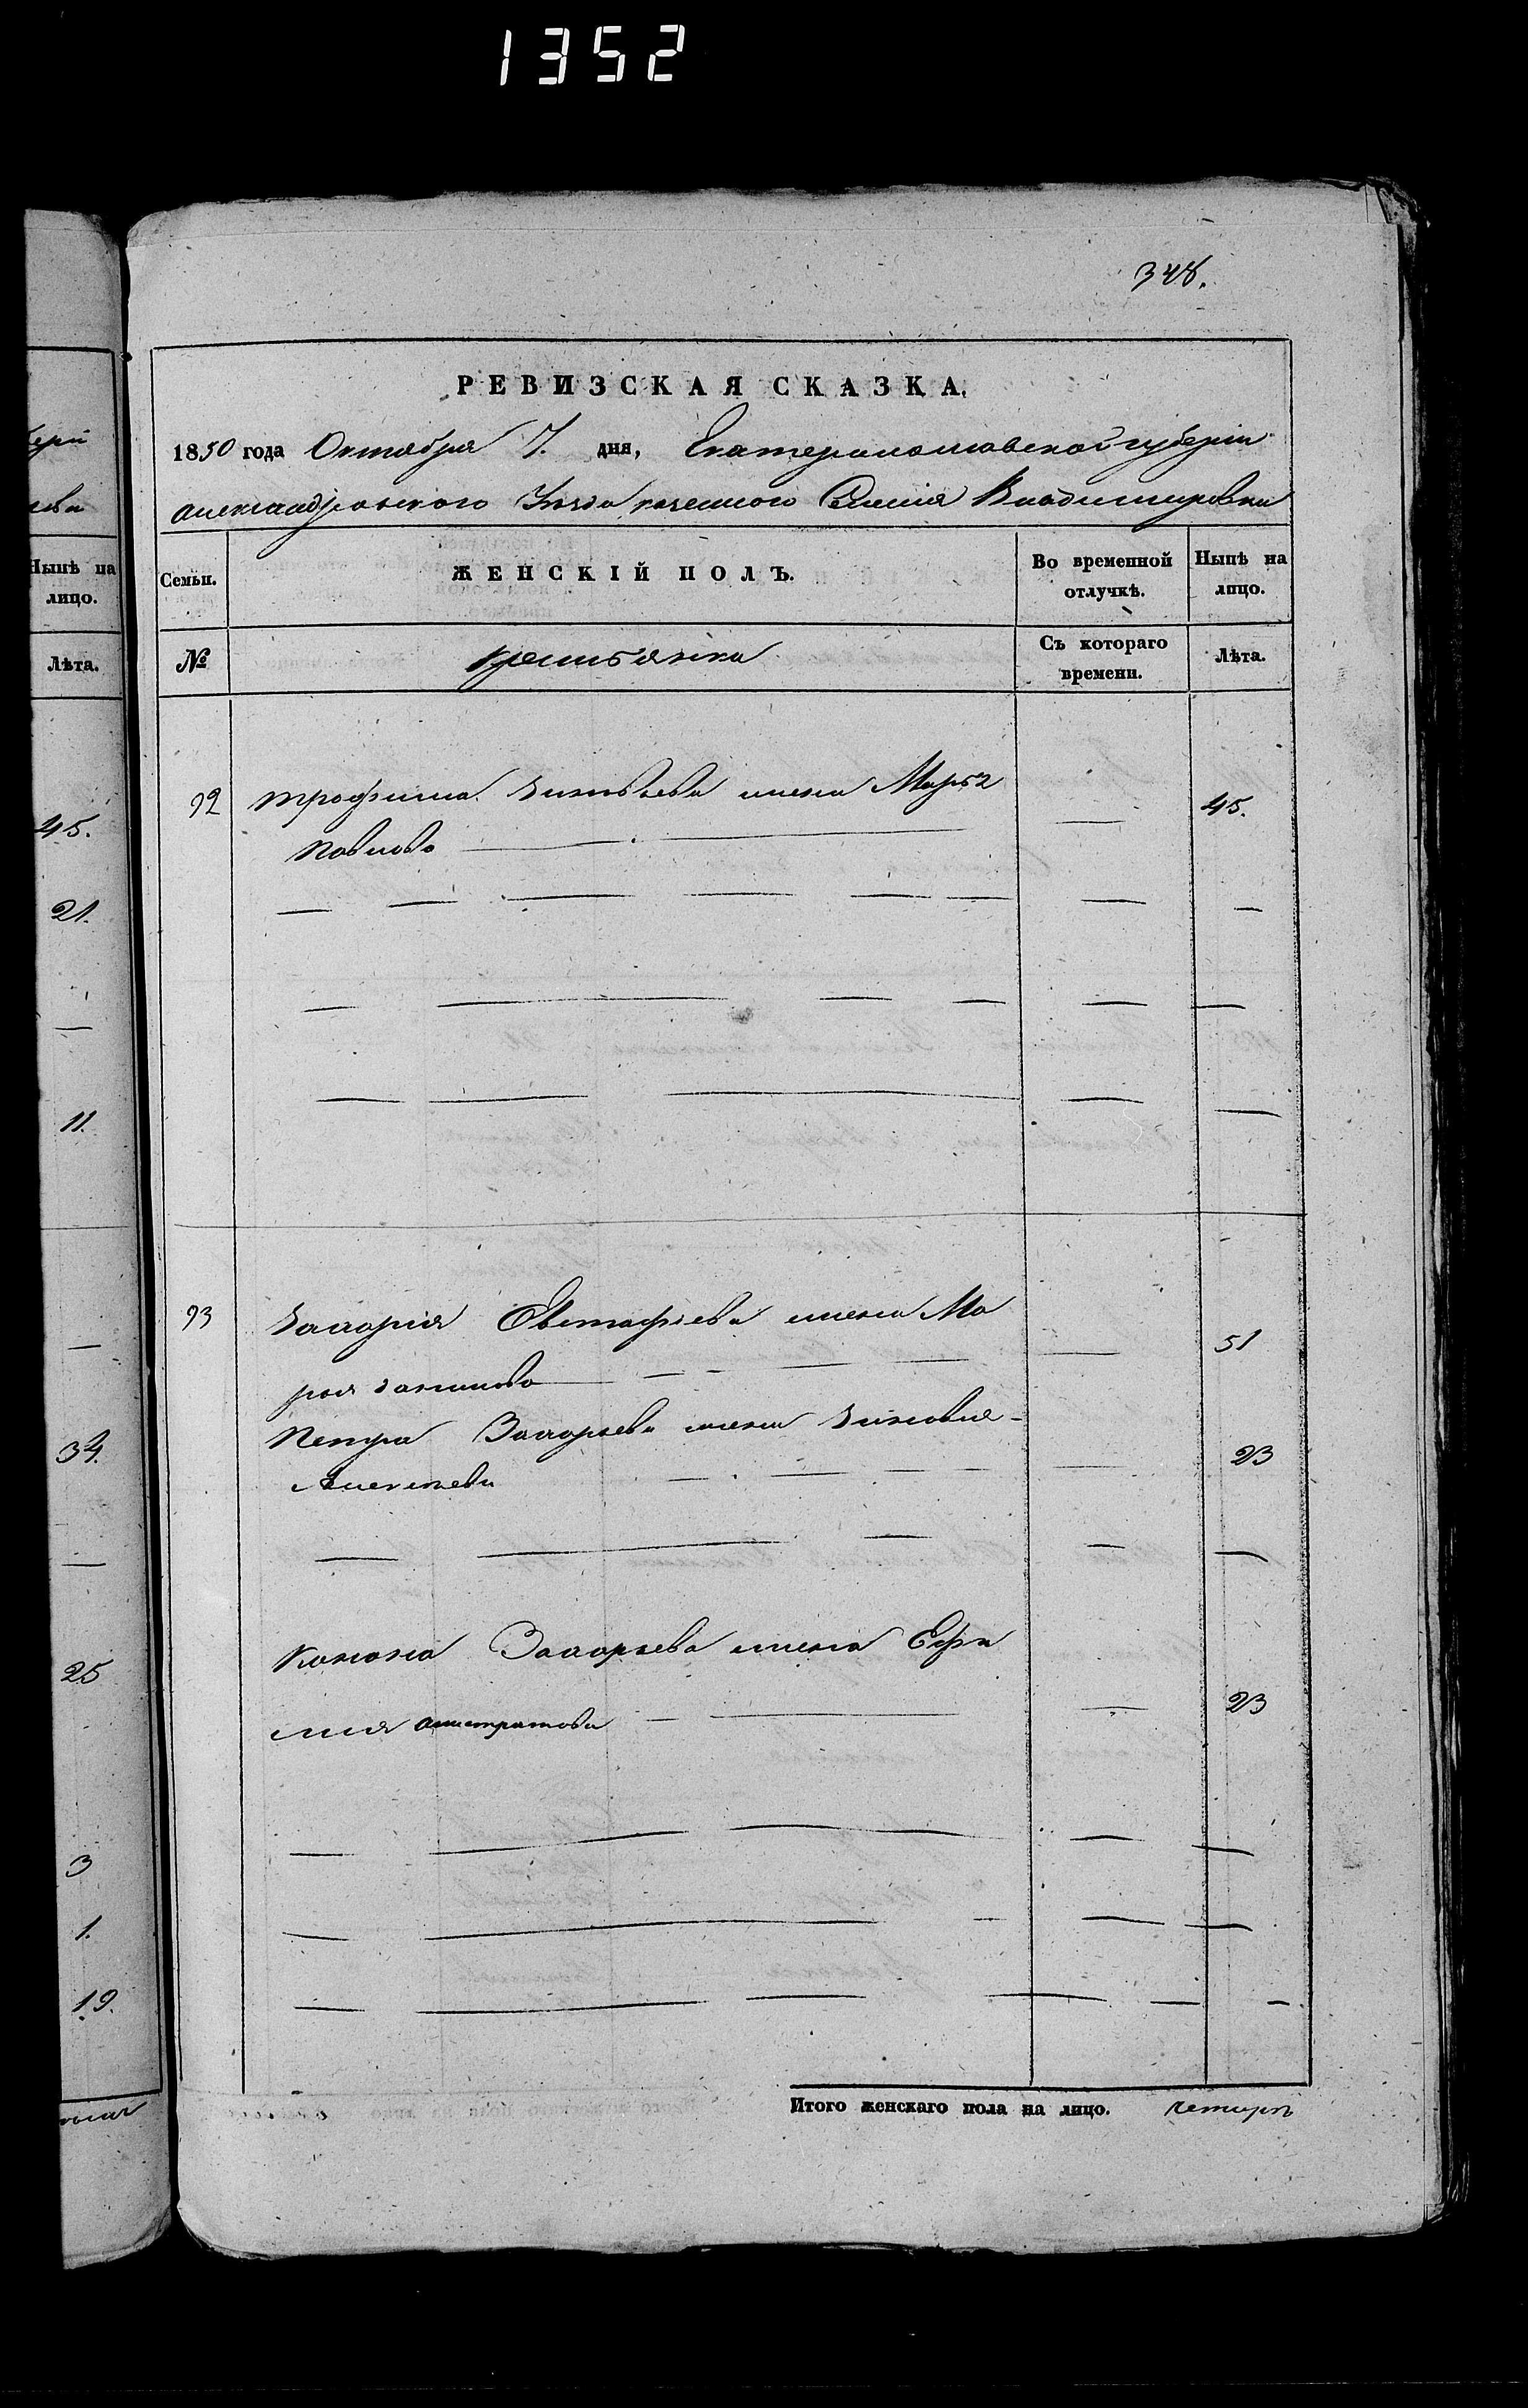 1352
348.
герн
Нынѣ на
лицо.
Лѣта.
45.
21.
11.
34.
25
3
1.
19.
РЕВИЗСКАЯ СКАЗКА.
1850 года Октября 7. дня, Екатеринославской губерніи
александровского Уѣзда казенного Селенія Владимировки
Семьи. ЖЕНСКІЙ ПОЛЪ. Во временной отлучкѣ. Нынѣ на лицо.
№ Крестьянки Съ котораго времени. Лѣта.
92 трофима Зиновьева жена Марья 45.
Павлова
93 Захарія Евстафіева жена Ма
51
Петра Захарьева жена Зиновія 23
Алексѣева
Конона Захарьева жена Ефи
мія 23
Итого женскаго пола на лицо. четыре